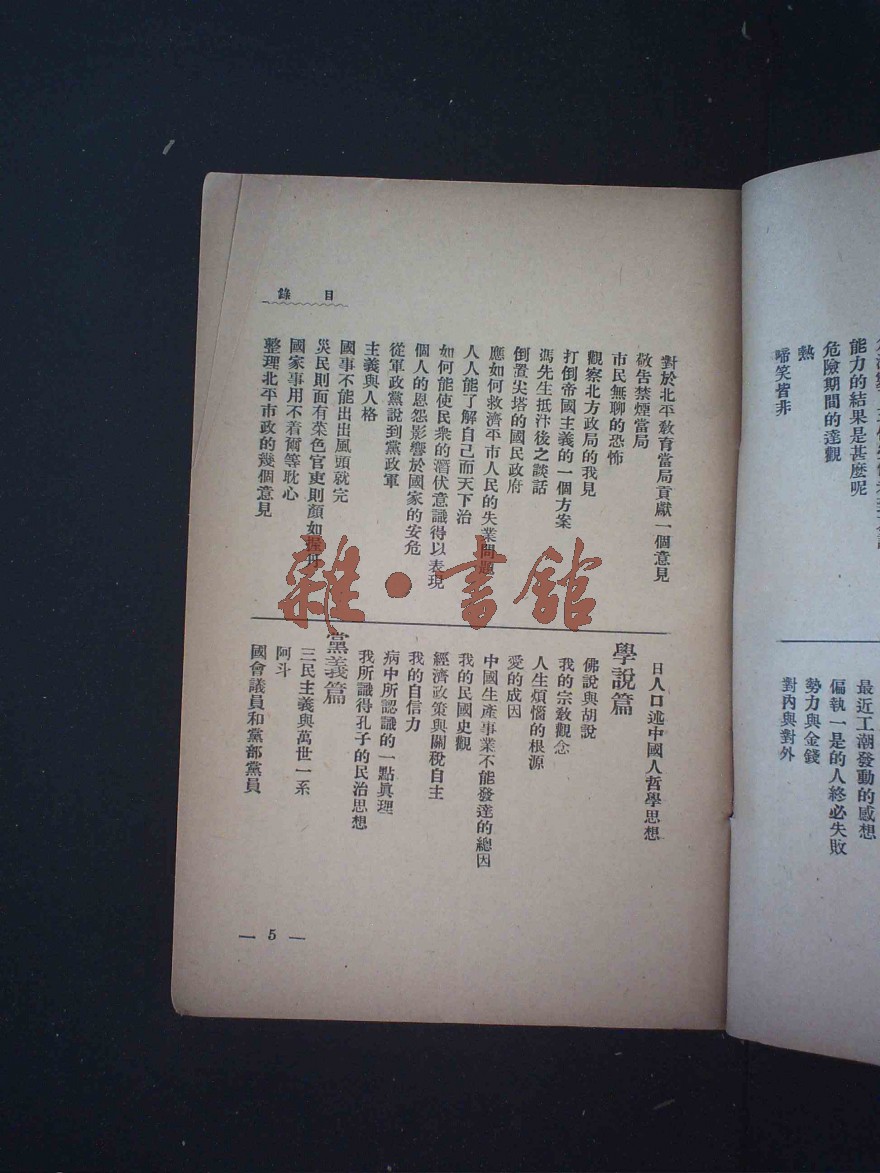 能力的結果是甚麼呢
危險期間的達觀
熱
啼笑皆非
最近工潮發動的感想
偏執一是的人終必失敗
勢力與金錢
對內與對外
目錄
對於北平教育當局貢獻一個意見
敬告禁煙當局
市民無聊的恐怖
觀察北方政局的我見
打倒帝國主義的一個方案
馮先生抵汴後之談話
倒置尖塔的國民政府
應如何救濟平市人民的失業問題
人人能了解自己而天下治
如何能使民衆的潛伏意識得以表現
個人的恩怨影響於國家的安危
從軍政黨說到黨政軍
主義與人格
國事不能出出風頭就完
災民則面有菜色官吏則顏如握丹
國家事用不着爾等耽心
整理北平市政的幾個意見
日人口述中國人哲學思想
學說篇
佛說與胡說
我的宗教觀念
人生煩惱的根源
愛的成因
中國生產事業不能發達的總因
我的民國史觀
經濟政策與關稅自主
我的自信力
病中所認識的一點眞理
我所識得孔子的民治思想
黨義篇
三民主義與萬世一系
阿斗
國會議員和黨部黨員
— 5 —
雜·書館